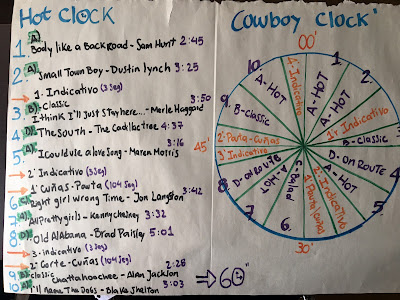 Hot Clock
1 A) Body like a Back road - Sam Hunt 2:45
2 A) Small Town Boy - Dustin lynch 3:25
→ 1. Indicativo (3 Seg)
3 B)- Classic 3:50
I think I'll Just Stay here... - Merle Haggard
4 D) The South - The Cadillac tree 4:37
5 A) I Could use a love Song - Maren Morris 3:16
→ 2' Indicativo (3 Seg)
→ 1' Cuñas - Pauta (104 Seg)
6 C) Right girl Wrong Time - Jon Langston 3:42
7 A) All Pretty girls - Kenny chesney 3:32
8 D) Old Alabama - Brad Paisley 5:01
→ 3 - indicativo (3 Seg)
→ 2' Corte - Cuñas (104 Seg)
9 B) Classic
Chattahoochee - Alan Jackson 2:28
10 A) I'll Name The Dogs - Blake Shelton 3:03
⇒ 60"
Cowboy Clock'
00'
1.
A - HOT
2.
A - HOT
1.' Indicativo
3.
B - Classic
4.
D - on Route
5.
A - HOT
2.' Indicativo
1' Pauta/Cuñas
30'
6.
7.
A - HOT
8.
D - on Route
3' Indicativo
45'
2' Pauta - Cuñas
9.
B - Classic
10.
A - HOT
4.' Indicativo